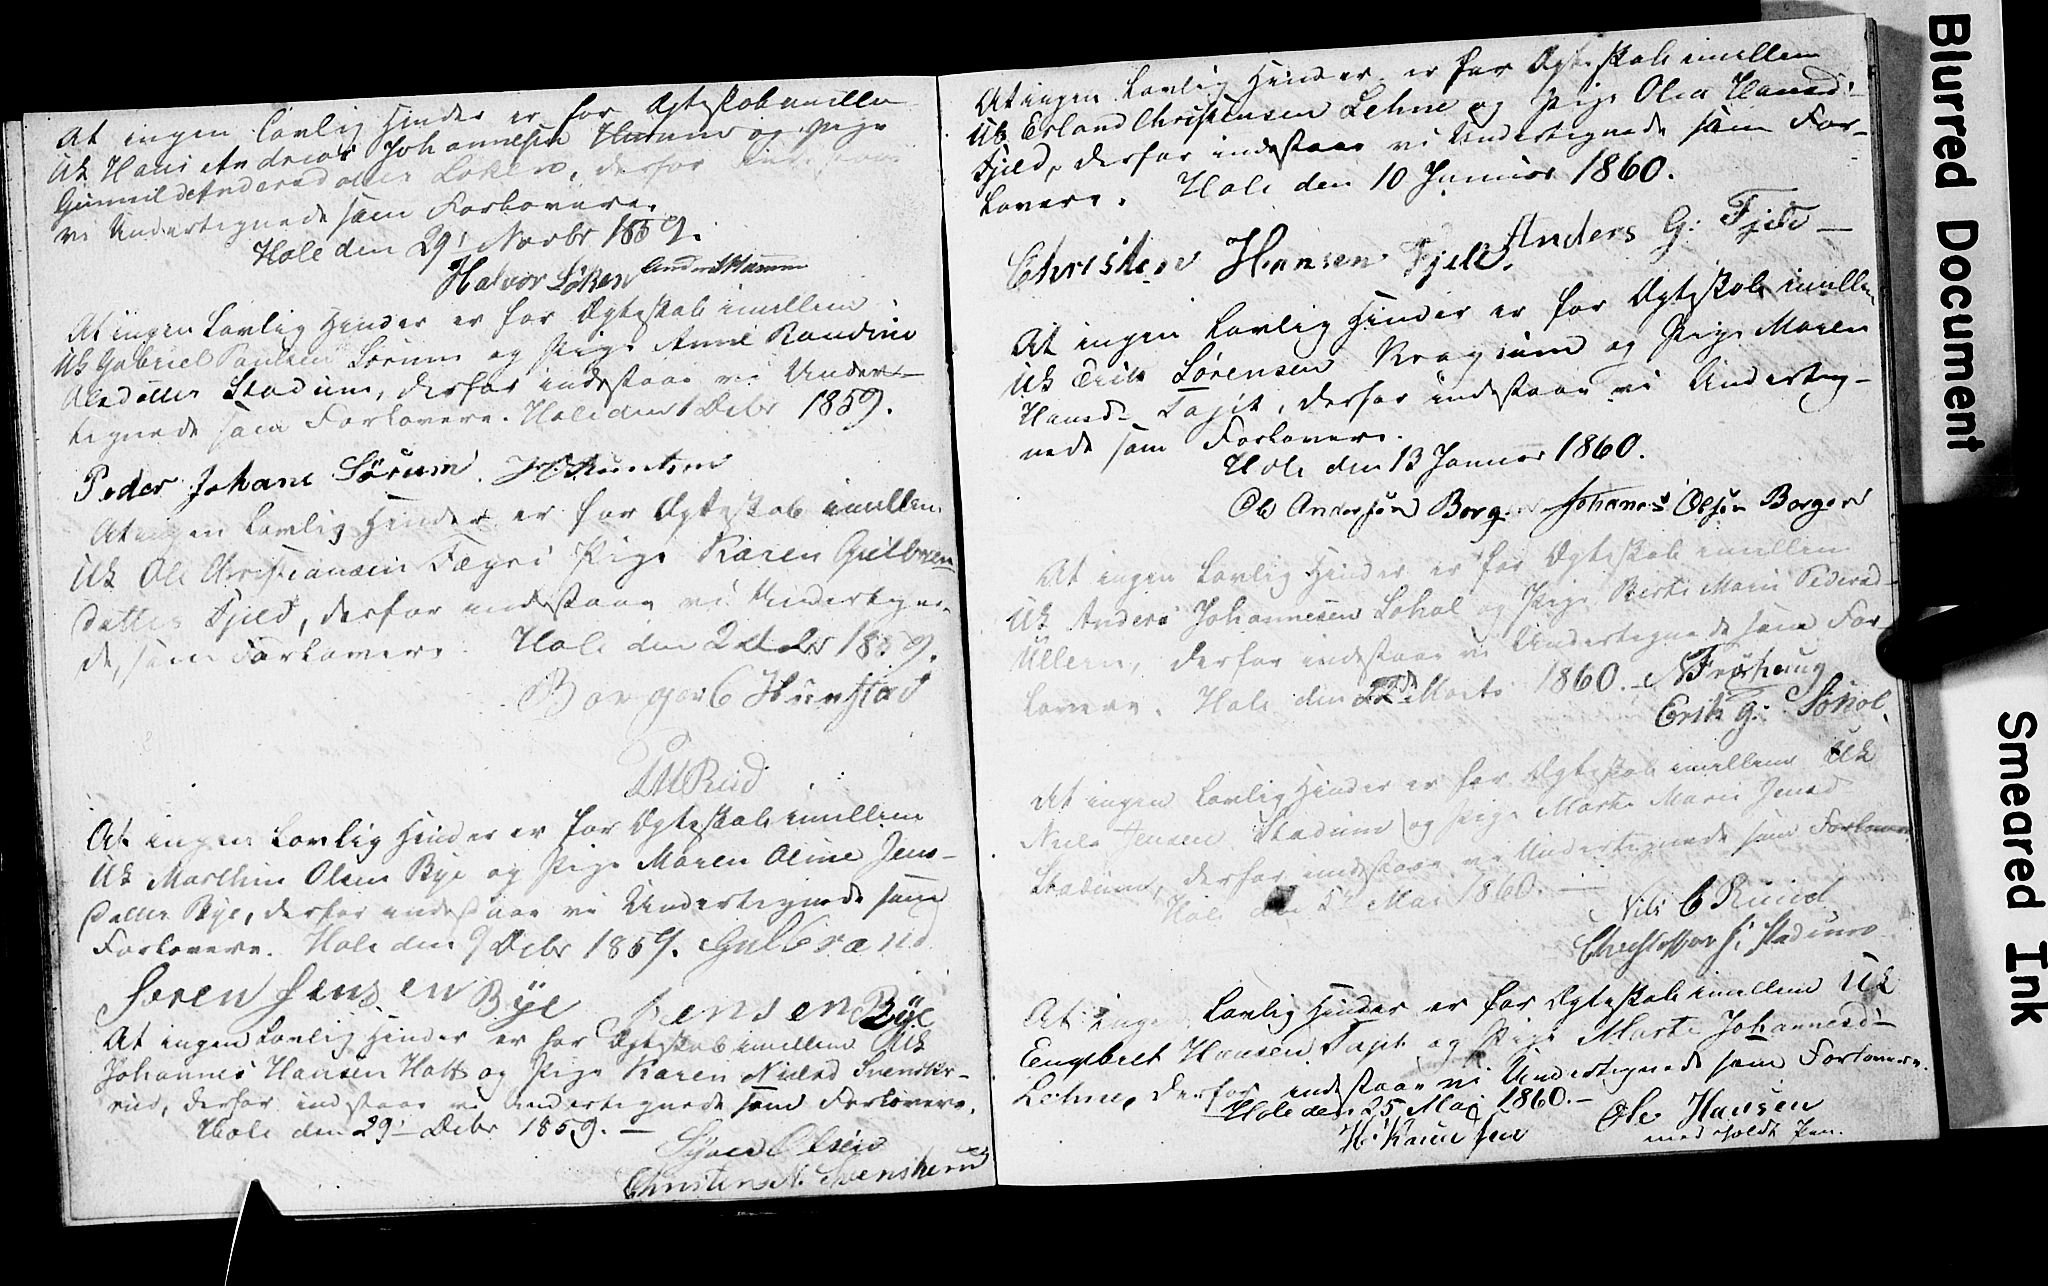 At ingen Lovlig Hinder er for Ægteskab imellem
Uk Hans Andreas Johannesen Hamm og Pige
Gunnild Andersdatter Løken, derfor indestaae
vi Undertegnede som Forlovere.
Hole den 29' Novbr 1859.
Halvor Løken Anders Hamm
At ingen Lovlig Hinder er for Ægteskab imellem
Uk Gabriel Paulsen Sørum og Pige Anne Randine
Olsdatter Stadum, derfor indestaae vi Under-
tegnede som Forlovere. Hole den 1 Decbr 1859.
Peder Johans Sørum. H Knutsen
At ingen Lovlig Hinder er for Ægteskab imellem
Uk Ole Christiansen Fægri Pige Karen Gulbran
datter Fjeld, derfor indestaae vi Undertegne-
de, som Forlovere Hole den 2 Decbr 1859.
Borger C Hurstad
Ruud
At ingen Lovlig Hinder er for Ægteskab imellem
Uk Marthin Olsen Bye og Pige Maren Oline Jens-
datter Bye, derfor indestaae vi Undertegnede som
Forlovere. Hole den 9 Decbr 1859. Gulbrand
Søren Jensen Bye Jensen Bye
At ingen Lovlig Hinder er for Ægteskab imellem Uk
Johannes Hansen Hatt og Pige Karen Nielsd Svensker-
rud, derfor indstaae vi Undertegnede som Forlovere.
Hole den 29' Decbr 1859. —
Syver Olsen
Christen N. Svenskerud
At ingen Lovlig Hinder er for Ægteskab imellem
Uk Erland Christensen Lehne og Pige Olea Hansd:
Fjeld, derfor indestaae vi Undertegnede som For-
lovere. Hole den 10 Januar 1860.
Christen Hansen Fjeld. Anders G: Fjeld —
At ingen Lovlig Hinder er for Ægteskab imellem
Uk Erik Sørensen Krogsum og Pige Maren
Hansd- Fagst, derfor indestaae vi Underteg-
nede som Forlovere.
Hole den 13 Januar 1860.
Ole Andersen Borg. Johanes Olsen Borgen
At ingen Lovlig Hinder er for Ægteskab imellem
Uk Anders Johannesen Sohol og Pige Berte Marie Pedersd-
Ullern, derfor indestaae vi Undertegnede som For-
lovere. Hole den 22de Marts 1860. N Frøshaug
Erik G: Sohol
At ingen Lovlig Hinder er for Ægteskab imellem Uk
Niels Jensen Stadum og Pige Marte Marie Jensd
Stadum, derfor indestaae vi Undertegnede som Forlovere
Hole den Mai 1860. —
Nils C Ruud
Christoffer J. Stadum
At ingen Lovlig Hinder er for Ægteskab imellem Uk
Engebret Hansen Fagst og Pige Marte Johannesd-
Lehne, derfor indestaae vi Undertegnede som Forlovere.
Hole den 25 Maj 1860. —
H: Knudsen Ole Hansen
med holdt Pen.
Blurred Document
Smeared Ink